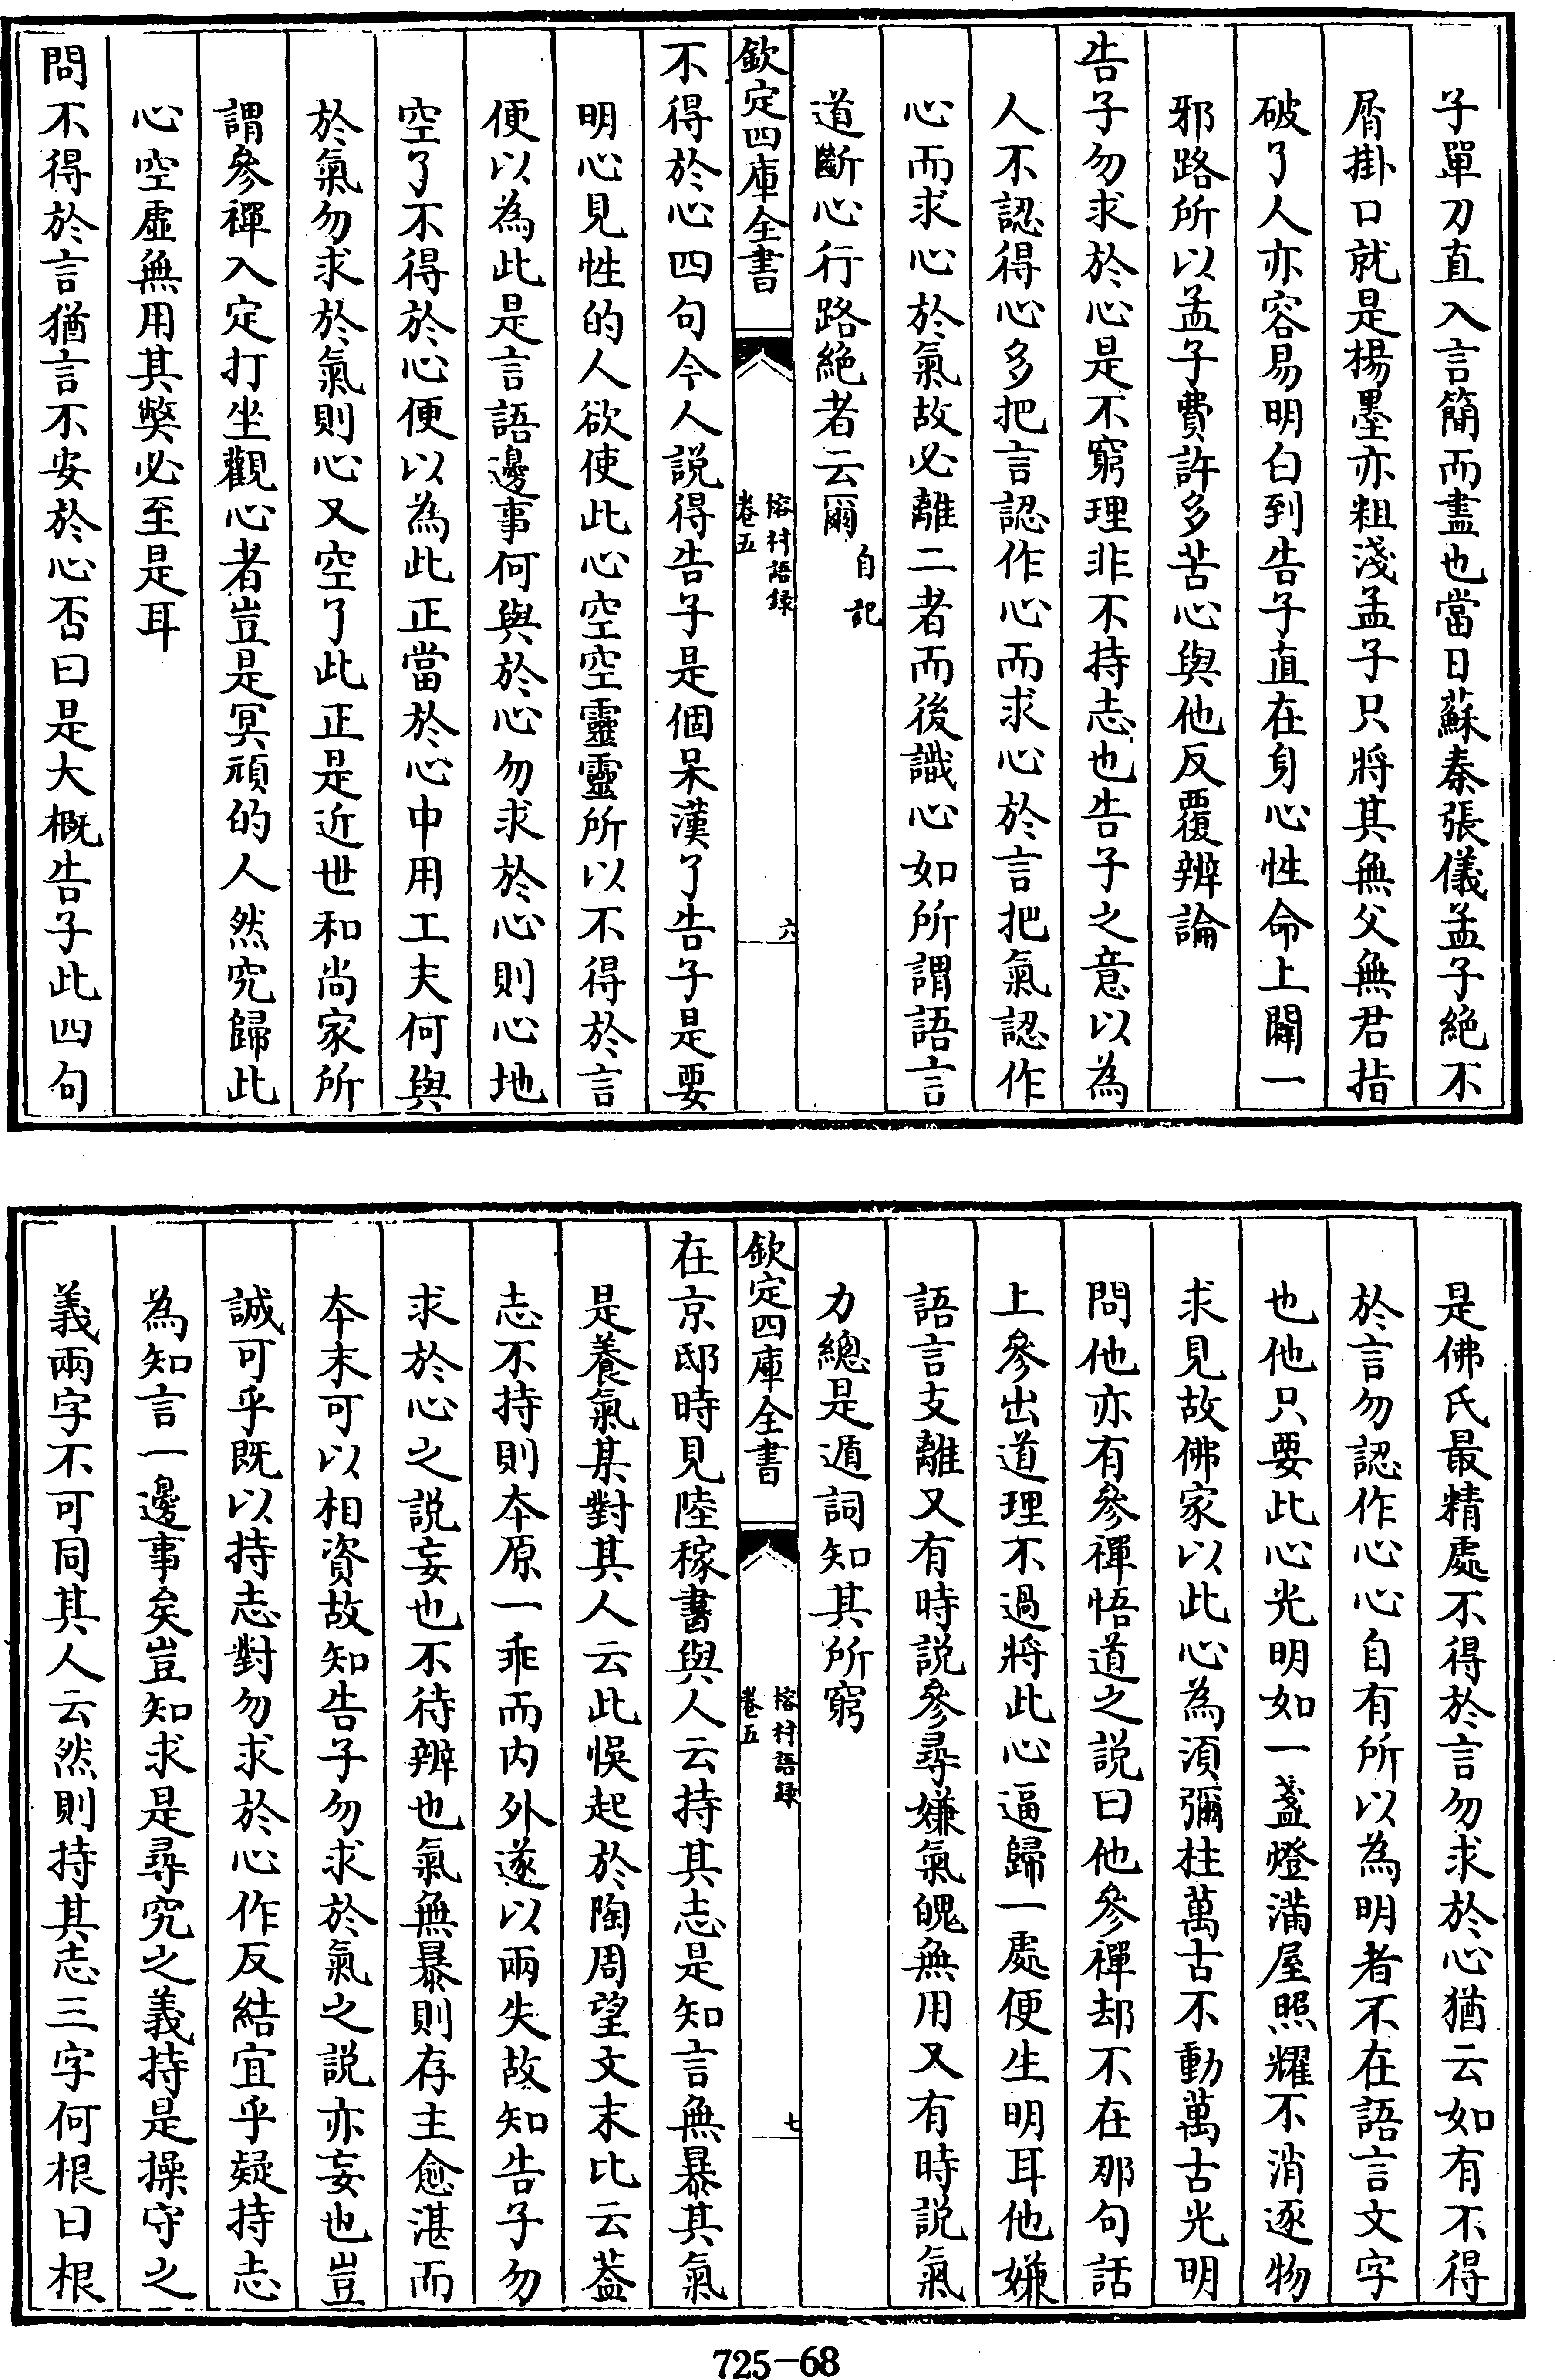 子單刀直入言簡而盡也當日蘇秦張儀孟子絶不
屑掛口就是楊墨亦粗淺孟子只將其無父無君指
破了人亦容易明白到告子直在身心性命上闢一
邪路所以孟子費許多苦心與他反覆辨論
告子勿求於心是不窮理非不持志也告子之意以為
人不認得心多把言認作心而求心於言把氣認作
心而求心於氣故必離二者而後識心如所謂語言
道斷心行路絶者云爾自記
欽定四庫全書 榕村語録 卷五 六
不得於心四句今人説得告子是個呆漢了告子是要
明心見性的人欲使此心空空靈靈所以不得於言
便以為此是言語邊事何與於心勿求於心則心地
空了不得於心便以為此正當於心中用工夫何與
於氣勿求於氣則心又空了此正是近世和尚家所
謂參禪入定打坐觀心者豈是冥頑的人然究歸此
心空虛無用其獘必至是耳
問不得於言猶言不安於心否曰是大概告子此四句
是佛氏最精處不得於言勿求於心猶云如有不得
於言勿認作心心自有所以為明者不在語言文字
也他只要此心光明如一盞燈滿屋照耀不消逐物
求見故佛家以此心為湏彌柱萬古不動萬古光明
問他亦有參禪悟道之説曰他參禪却不在那句話
上參出道理不過將此心逼歸一處便生明耳他嫌
語言支離又有時説參尋嫌氣魄無用又有時説氣
力總是遁詞知其所窮
欽定四庫全書 榕村語録 卷五 七
在京邸時見陸稼書與人云持其志是知言無暴其氣
是養氣某對其人云此悞起於陶周望文末比云葢
志不持則本原一乖而内外遂以兩失故知告子勿
求於心之説妄也不待辨也氣無暴則存主愈湛而
本末可以相資故知告子勿求於氣之説亦妄也豈
誠可乎既以持志對勿求於心作反結宜乎疑持志
為知言一邊事矣豈知求是尋究之義持是操守之
義兩字不可同其人云然則持其志三字何根曰根
725-68